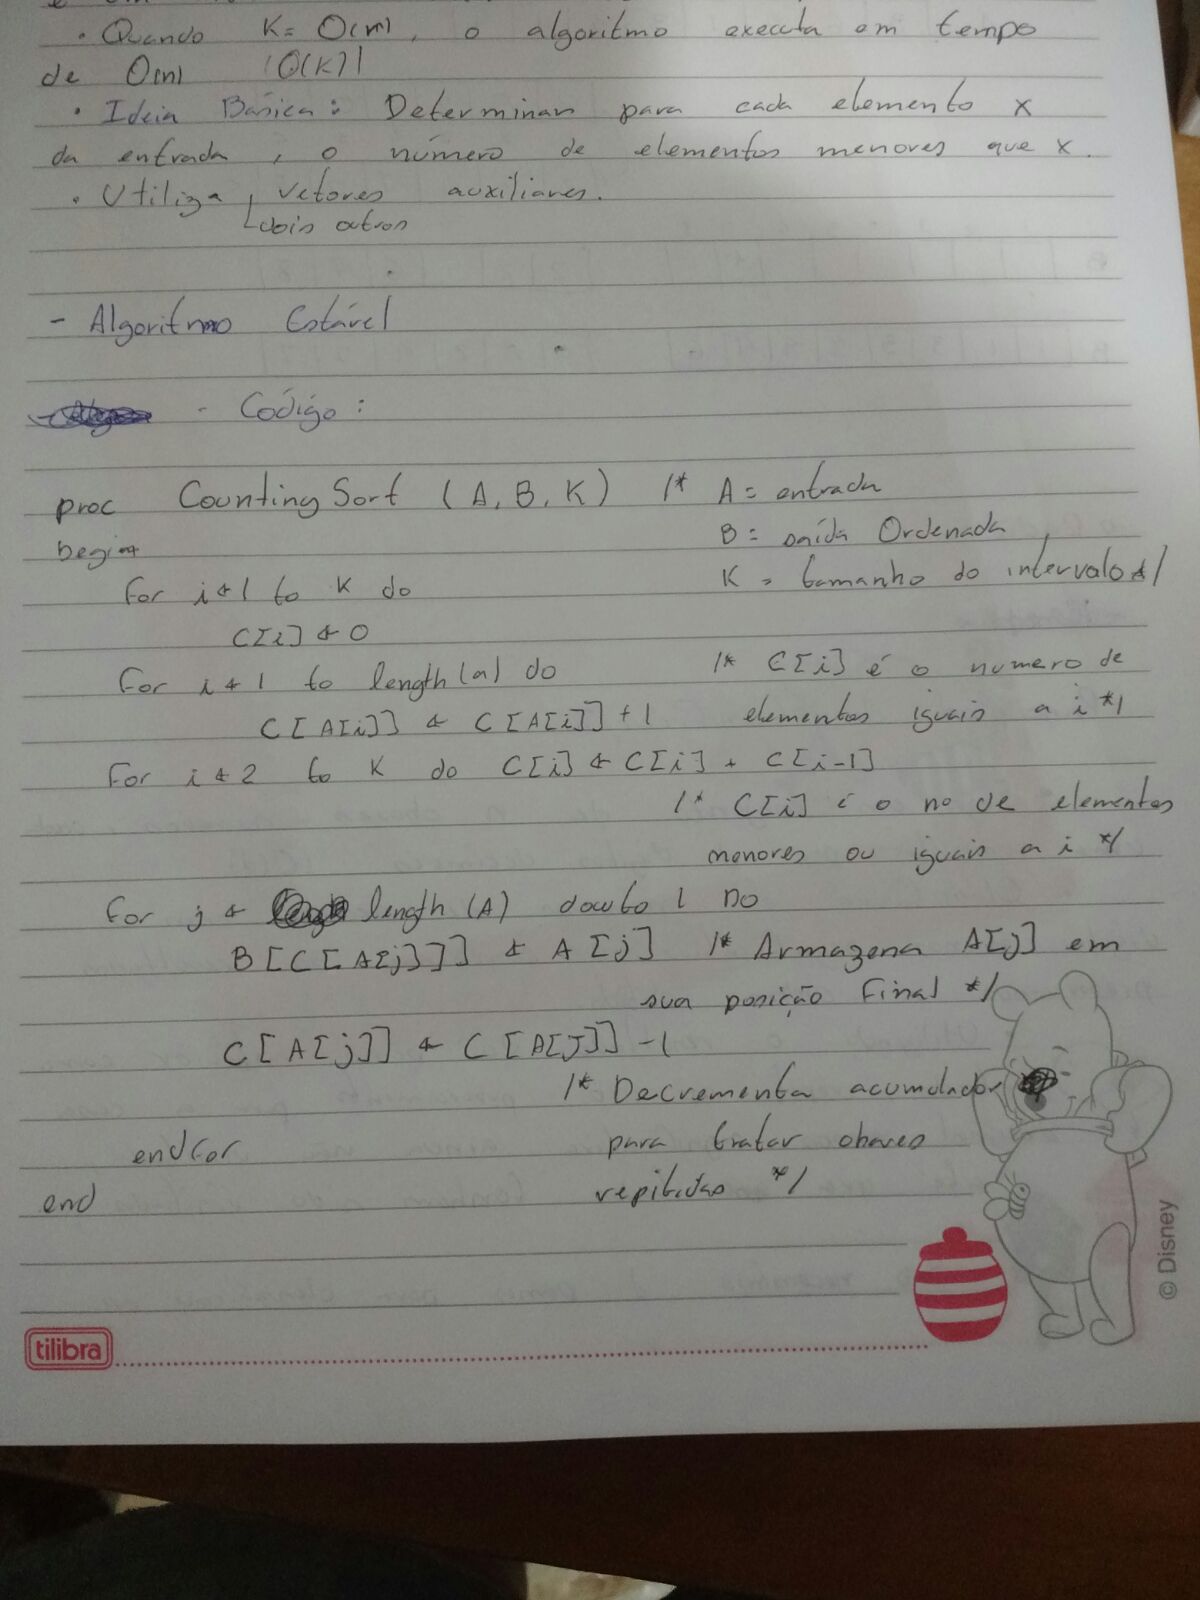 · Quando K = O(n), o algoritmo executa em tempo
de O(n) |O(K)|
· Ideia Básica: Determinar para cada elemento x
da entrada, o número de elementos menores que x.
· Utiliza vetores auxiliares.
dois outros
- Algoritmo Estável
- Código:
proc Counting Sort (A, B, K) /* A = entrada
begin B = saída Ordenada,
K = tamanho do intervalo */
For i ← 1 to K do
C[i] ← 0
For i ← 1 to length(a) do /* C[i] é o numero de
C[A[i]] ← C[A[i]] + 1 elementos iguais a i */
For i ← 2 to K do C[i] ← C[i] + C[i-1]
/* C[i] é o no de elementos
menores ou iguais a i */
For j ← length (A) dowto 1 DO
B[C[A[j]]] ← A[j] /* Armazena A[j] em
sua posição Final */
C[A[j]] ← C[A[J]] -1
/* Decrementa acumulador
endfor para tratar chaves
end repitidas */
© Disney
tilibra